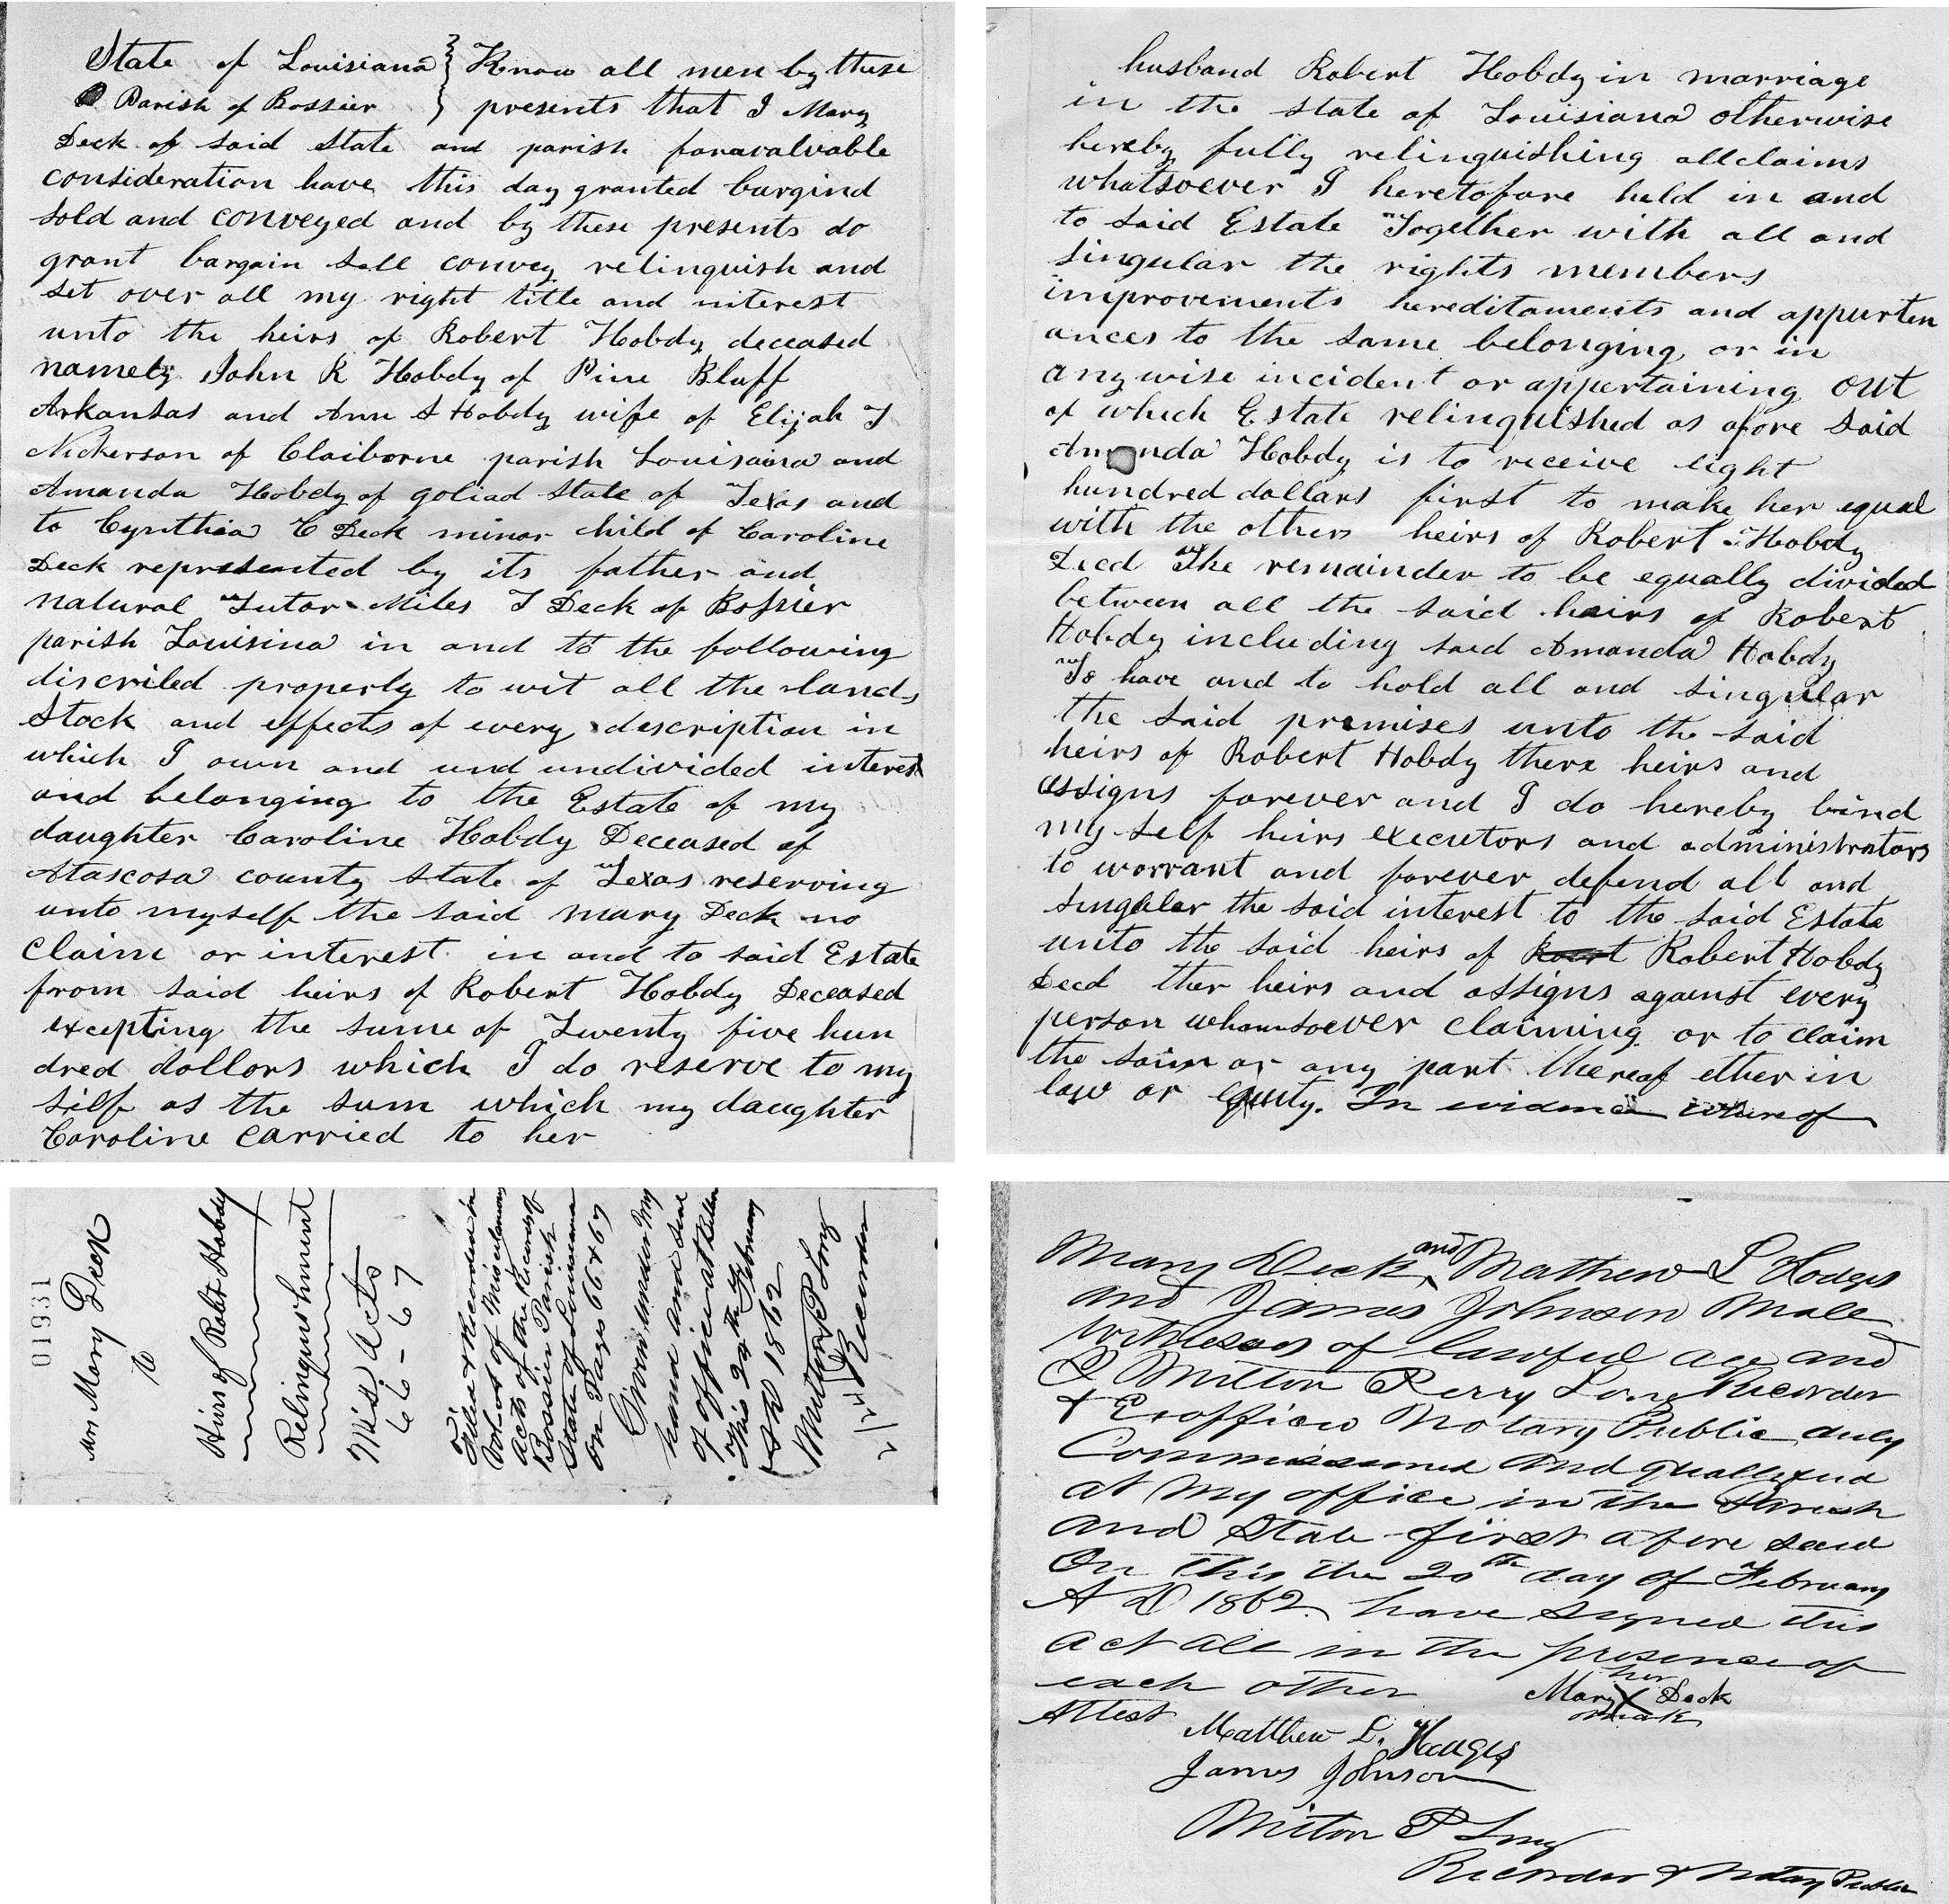 State of Louisiana } Know all men by these
Parish of Bossier } presents that I Mary
Deck of said State and parish foravalvable
consideration have this day granted bargind
sold and conveyed and by these presents do
grant bargain sell convey relinquish and
set over all my right title and interest
unto the heirs of Robert Hobdy deceased
namely John R Hobdy of Pine Bluff
Arkansas and Ann S Hobdy wife of Elijah T
Nickerson of Claiborne parish Louisiana and
Amanda Hobdy of goliad State of Texas and
to Cynthia C Deck minor child of Caroline
Deck represented by its father and
natural Tutor Miles T Deck of Bossier
parish Louisina in and to the following
discribed property to wit all the lands
Stock and effects of every description in
which I own and und undivided interest
and belonging to the Estate of my
daughter Caroline Hobdy Deceased of
Atascosa county state of Texas reserving
unto myself the said Mary Deck no
claim or interest in and to said Estate
from said heirs of Robert Hobdy Deceased
excepting the sume of Twenty five hun
dred dollors which I do reserve to my
self as the sum which my daughter
Caroline carried to her
husband Robert Hobdy in marriage
in the state of Louisiana otherwise
hereby fully relinquishing all claims
whatsoever I heretofore held in and
to said Estate Together with all and
singular the rights members
improvements hereditaments and appurten
ances to the same belonging or in
any wise incident or appertaining out
of which Estate relinquished as afore said
Amanda Hobdy is to receive eight
hundred dollars first to make her equal
with the others heirs of Robert Hobdy
Deed The remainder to be equally divided
between all the said heirs of Robert
Hobdy including said Amanda Hobdy
To have and to hold all and singular
the said premises unto the said
heirs of Robert Hobdy there heirs and
assigns forever and I do hereby bind
my-self heirs executors and administrators
to warrant and forever defend all and
singuler the said interest to the said Estate
unto the said heirs of Robert Hobdy
Deed ther heirs and assigns against every
person whomsoever claiming or to claim
the same or any part thereof ether in
law or equity. In evidence where of
01931
Mrs Mary Deck
to
Heirs of Robt Hobdy
Relinquishment
Mis Acts
66-67
Filed & Recorded in
Vol of Miscelaneous
acts of the Records of
Bossier Parish
State of Louisiana
on Pages 66 & 67
Given under My
hand and seal
of office at
this 24th February
AD 1862
Milton P Long
Recorder
Mary Deck and Mathew L Hodges
and James Johnson Male
witnesses of lawful age and
I Milton Perry Long Recorder
& Exofficio Notary Public duly
Commissioned and qualified
at My office in the Parish
and State first afore said
On this the 20th day of February
A D 1862 have signed this
act all in the presence of
each other
her
Mary X Deck
mark
Attest
Matthew L. Hauges
James Johnson
Milton P Long
Recorder & Notary Public